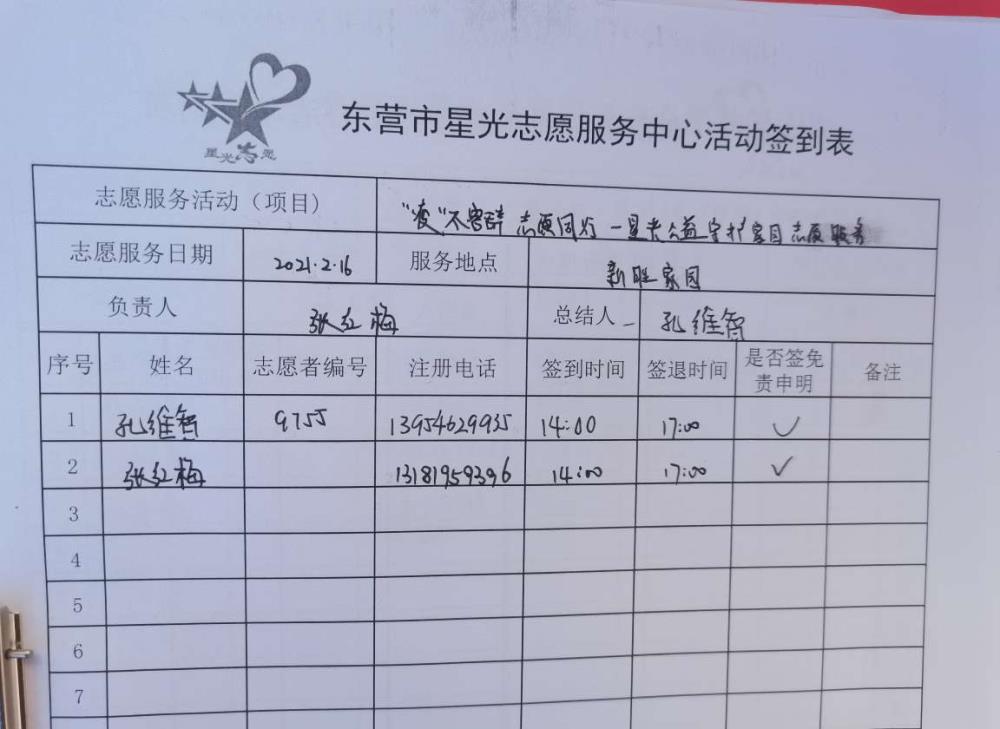 星光志愿
东营市星光志愿服务中心活动签到表
志愿服务活动（项目） "疫"不容辞 志愿同行 一星光公益守护家园志愿服务
志愿服务日期 2021.2.16 服务地点 新旺家园
负责人 张红梅 总结人 孔维智
序号 姓名 志愿者编号 注册电话 签到时间 签退时间 是否签免责申明 备注
1 孔维智 9755 13954629935 14:00 17:00 ✓
2 张红梅 13181959396 14:00 17:00 ✓
3
4
5
6
7